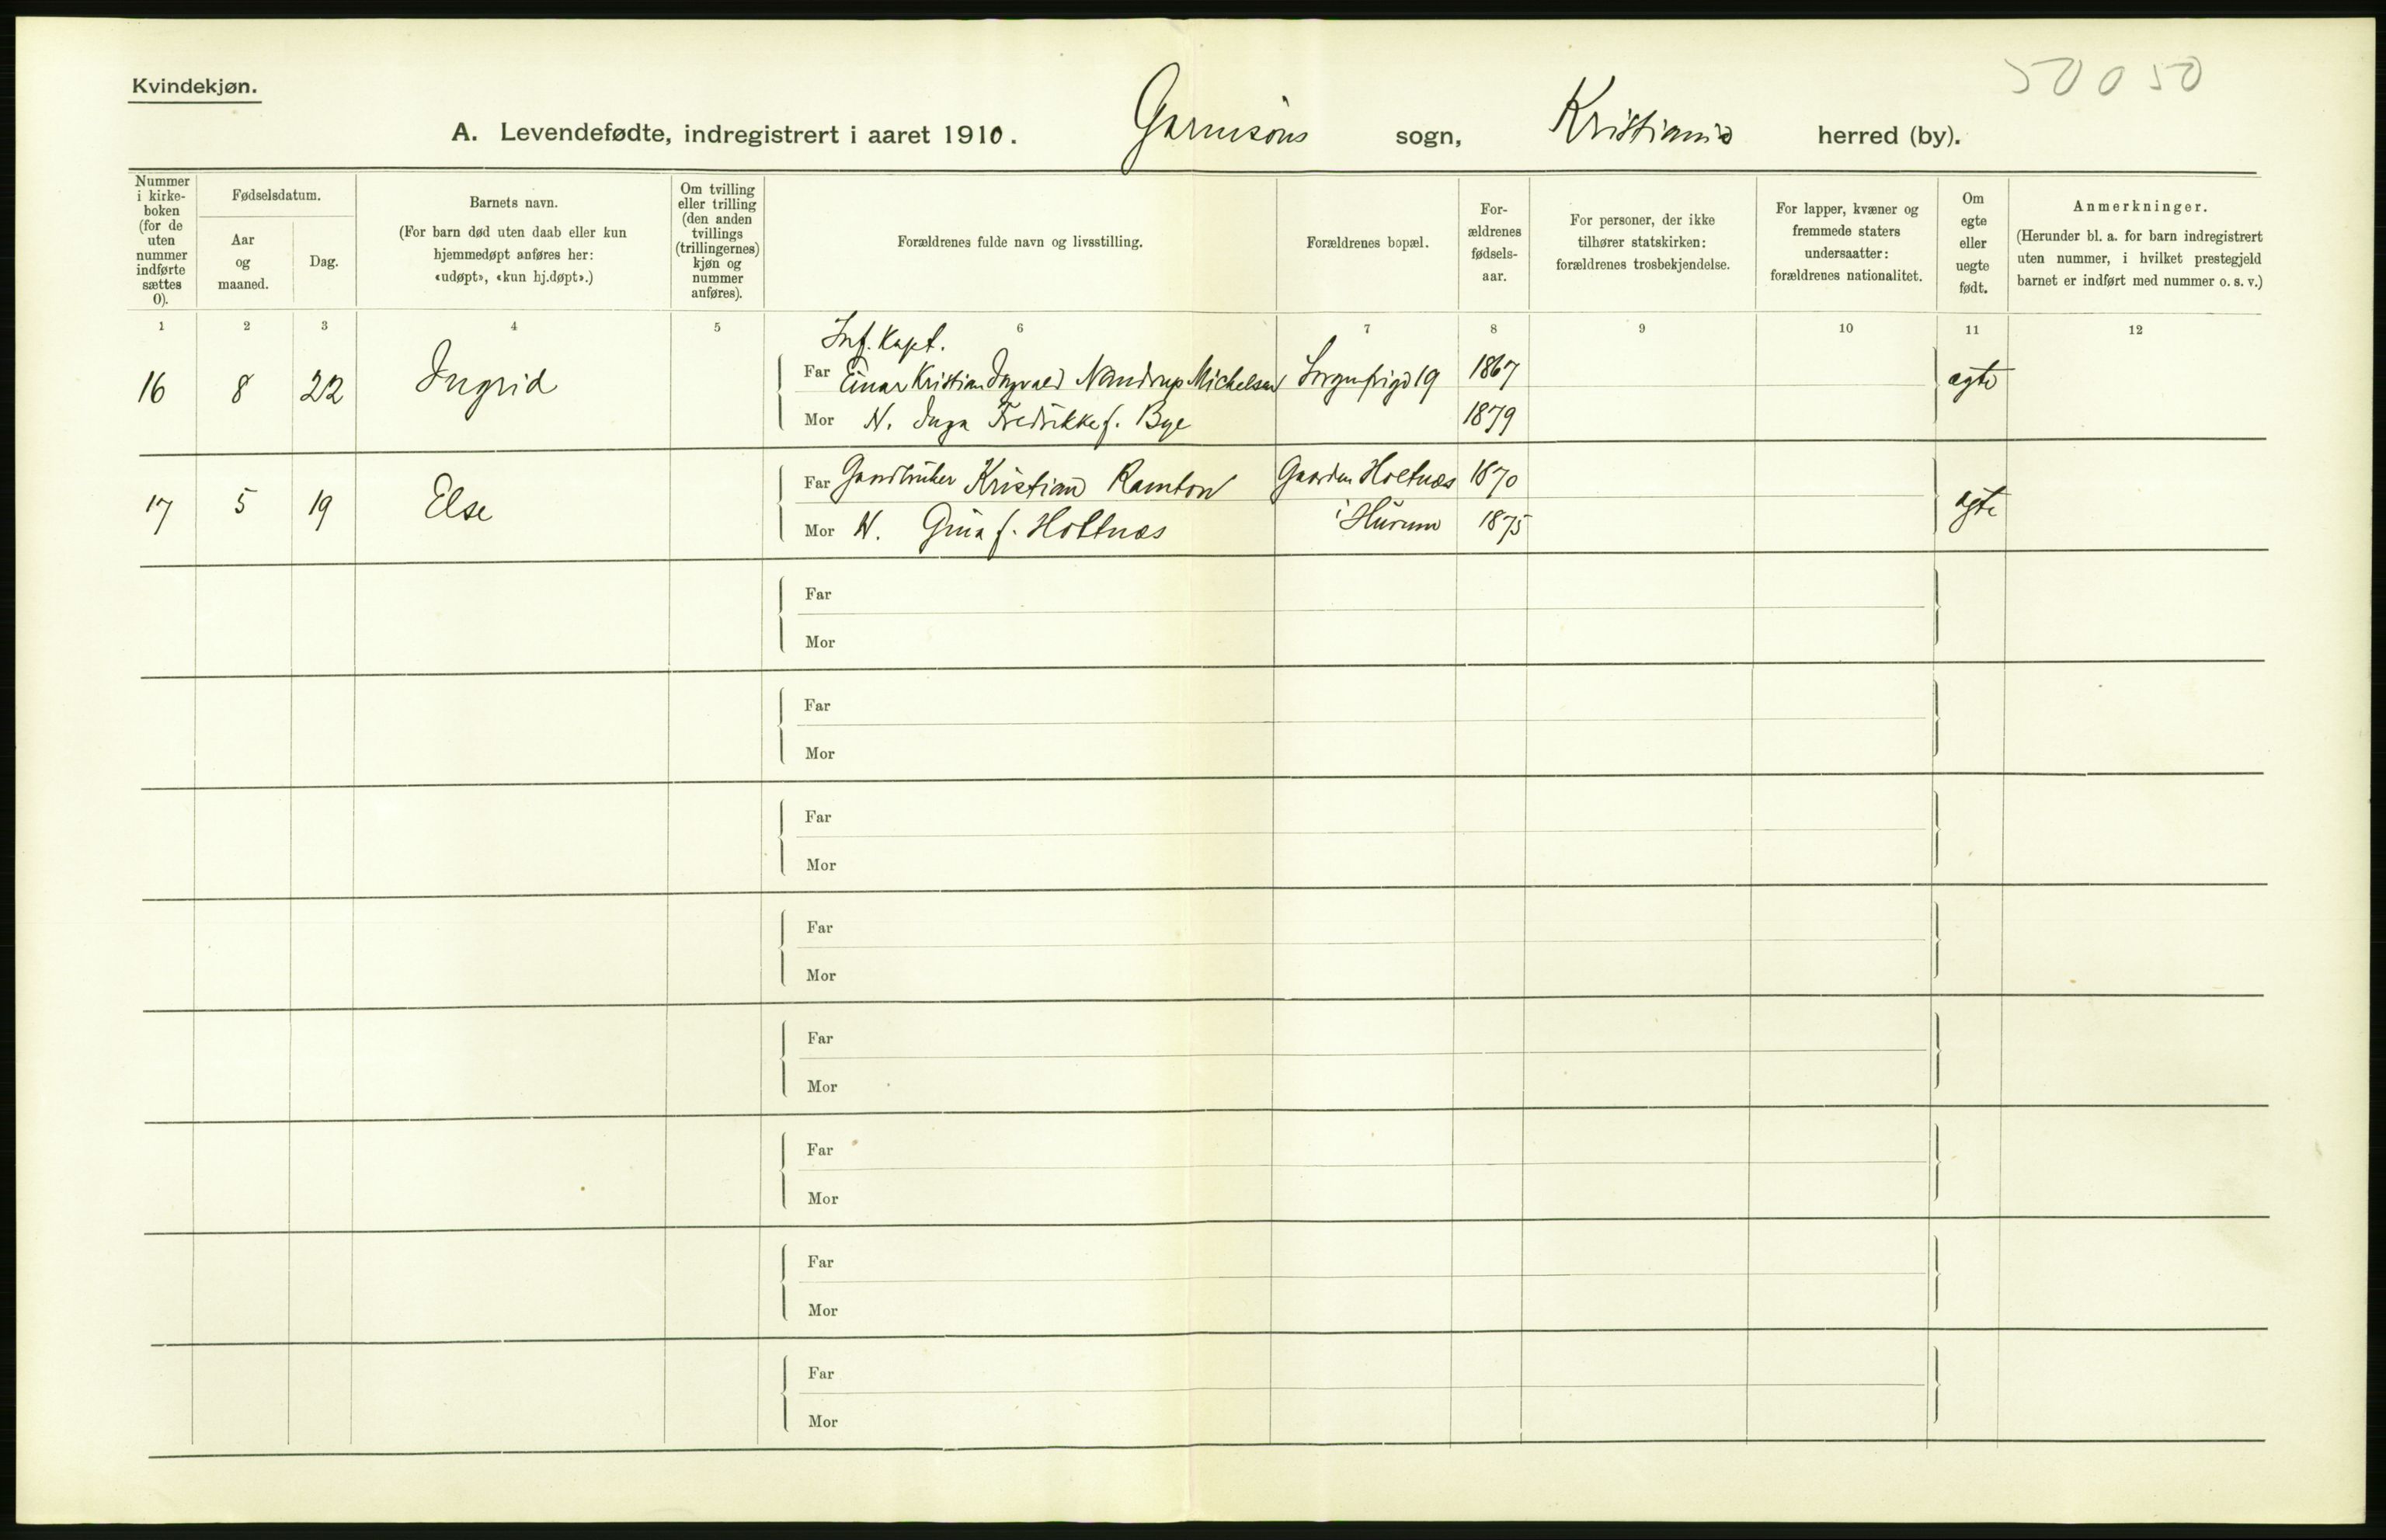 Kvindekjøn.
50 0 50
A. Levendefødte, indregistrert i aaret 1910. Garnisons sogn, Kristiania herred (by).
Nummer i kirke-boken (for de uten nummer indførte sættes 0).
Fødselsdatum.
Aar og maaned.
Dag.
Barnets navn.
(For barn død uten daab eller kun hjemmedøpt anføres her: «udøpt», «kun hj.døpt».)
Om tvilling eller trilling (den anden tvillings (trillingernes) kjøn og nummer anføres).
Forældrenes fulde navn og livsstilling.
Forældrenes bopæl.
For-ældrenes fødsels-aar.
For personer, der ikke tilhører statskirken: forældrenes trosbekjendelse.
For lapper, kvæner og fremmede staters undersaatter: forældrenes nationalitet.
Om egte eller uegte født.
Anmerkninger.
(Herunder bl. a. for barn indregistrert uten nummer, i hvilket prestegjeld barnet er indført med nummer o. s. v.)
1 2 3 4 5 6 7 8 9 10 11 12
Inf. Kapt.
16 8 22 Ingrid Far Einar Kristian Ingvald Nandrup Michelsen Sorgenfrigd 19 1867 ægte
Mor H. Inga Fredrikke f. Bye 1879
17 5 19 Else Far Gaardbruker Kristian Ramton Gaarden Holtnæs 1870 ægte
Mor H. Gina f. Holtnæs i Hurum 1875
Far
Mor
Far
Mor
Far
Mor
Far
Mor
Far
Mor
Far
Mor
Far
Mor
Far
Mor